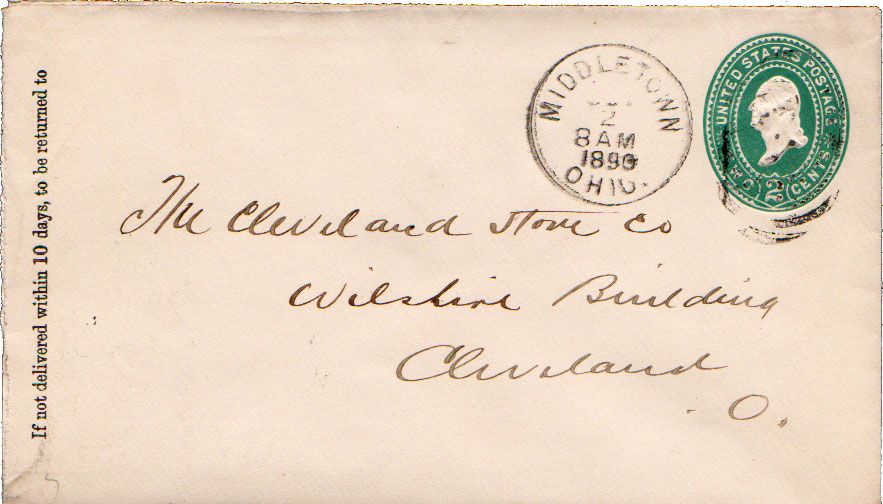 If not delivered within 10 days, to be returned to
MIDDLETOWN
2
8AM
OHIO.
UNITED STATES POSTAGE
TWO 2 CENTS
The Cleveland Stone Co
Wilshire Building
Cleveland
O.